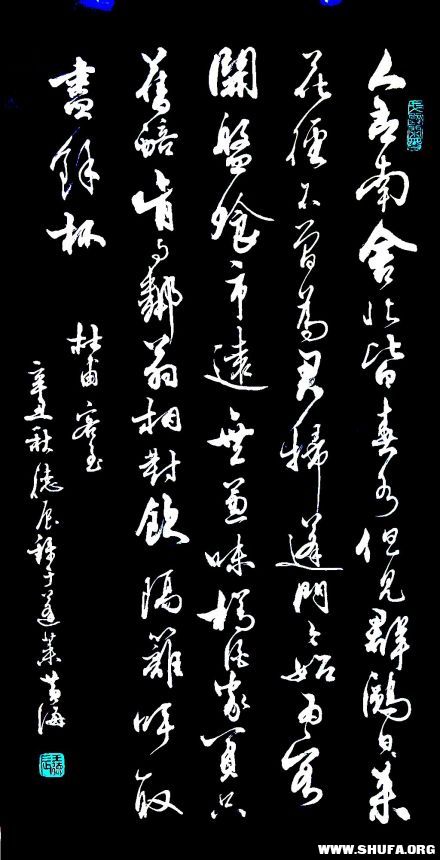 舍南舍北皆春水但見群鷗日日來
花徑不曾為君掃蓬門今始為客
開盤飧市遠無兼味樽酒家貧只
舊醅肯与鄰翁相對飲隔籬呼取
盡餘杯
杜甫客至
辛丑秋德辰于蓬萊黃海
WWW.SHUFA.ORG